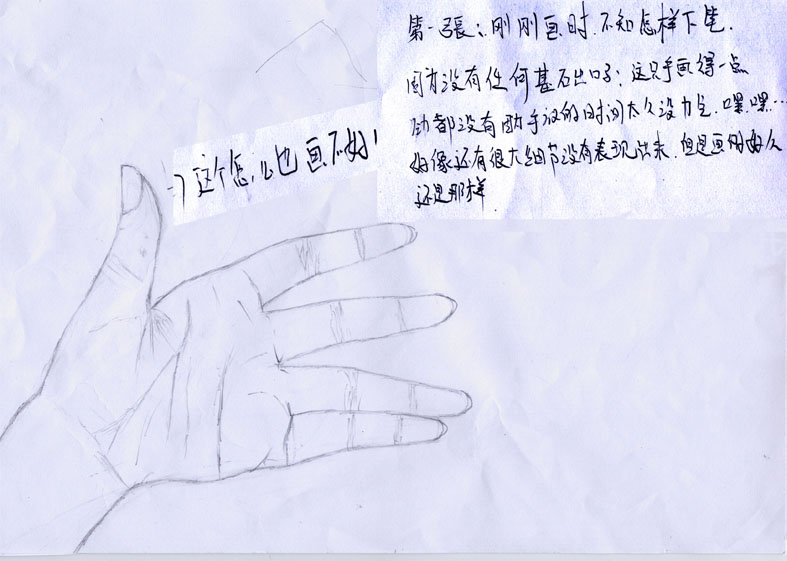 第一張：刚刚画时.不知怎样下笔.
因为没有任何基石出口子；这只手画得一点
劲都没有 的时间太久没力气.嘿.嘿…
好像还有很大细节没有表现出来.但是画例好久
还是那样
这个怎么也画不好！